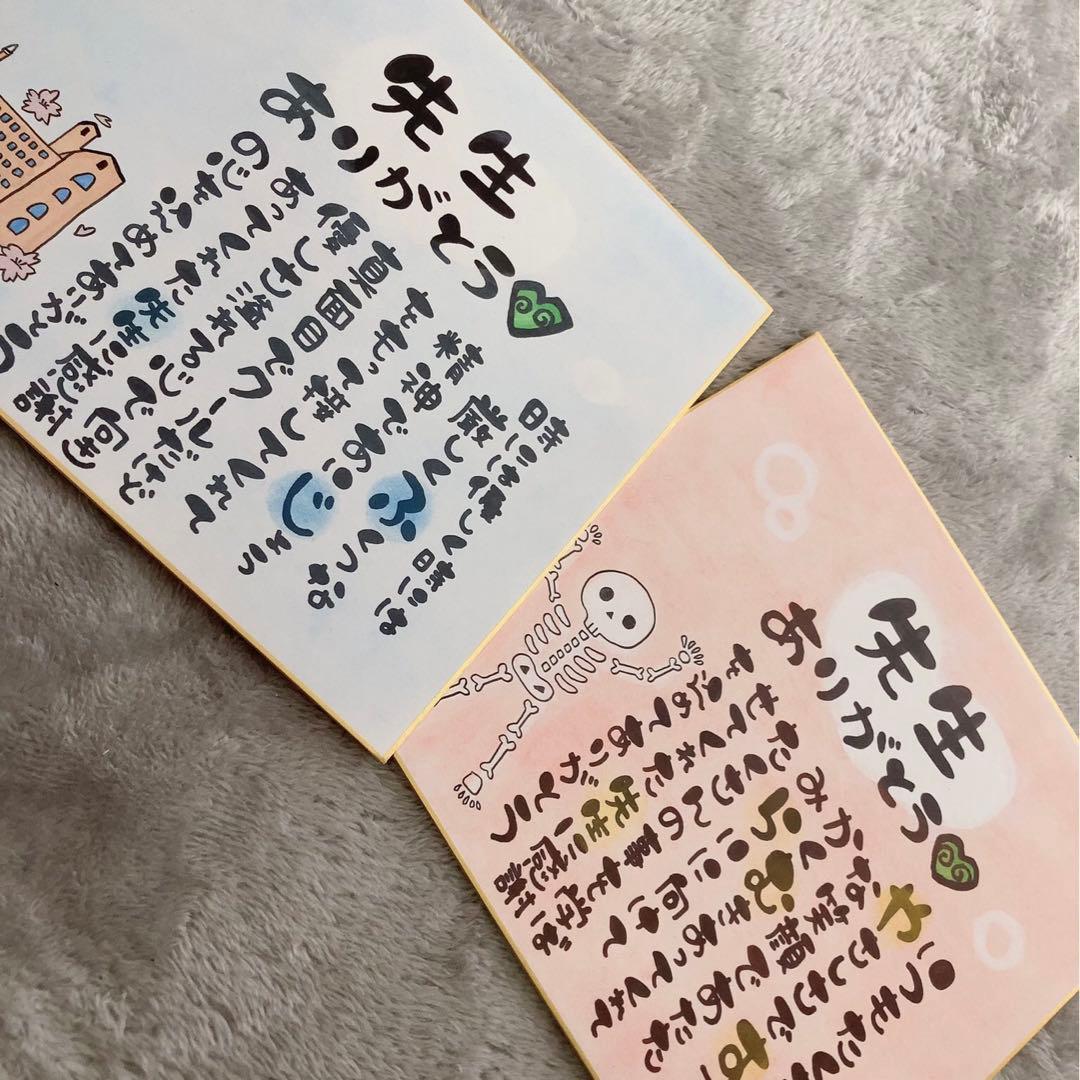 先生
ありがとう
時には優しく時には
厳しくふくつな
精神であいじょう
をもって接してくれて
真面目でクールだけど
優しさ溢れる心で向き
あってくれた先生に感謝
の心を込めてありがとう
先生
ありがとう
いつもたく
やさしさで
な笑顔であたたか
むきあってくれて
たくさんの事を学ば
せてくれた先生に感謝
を込めてありがとう